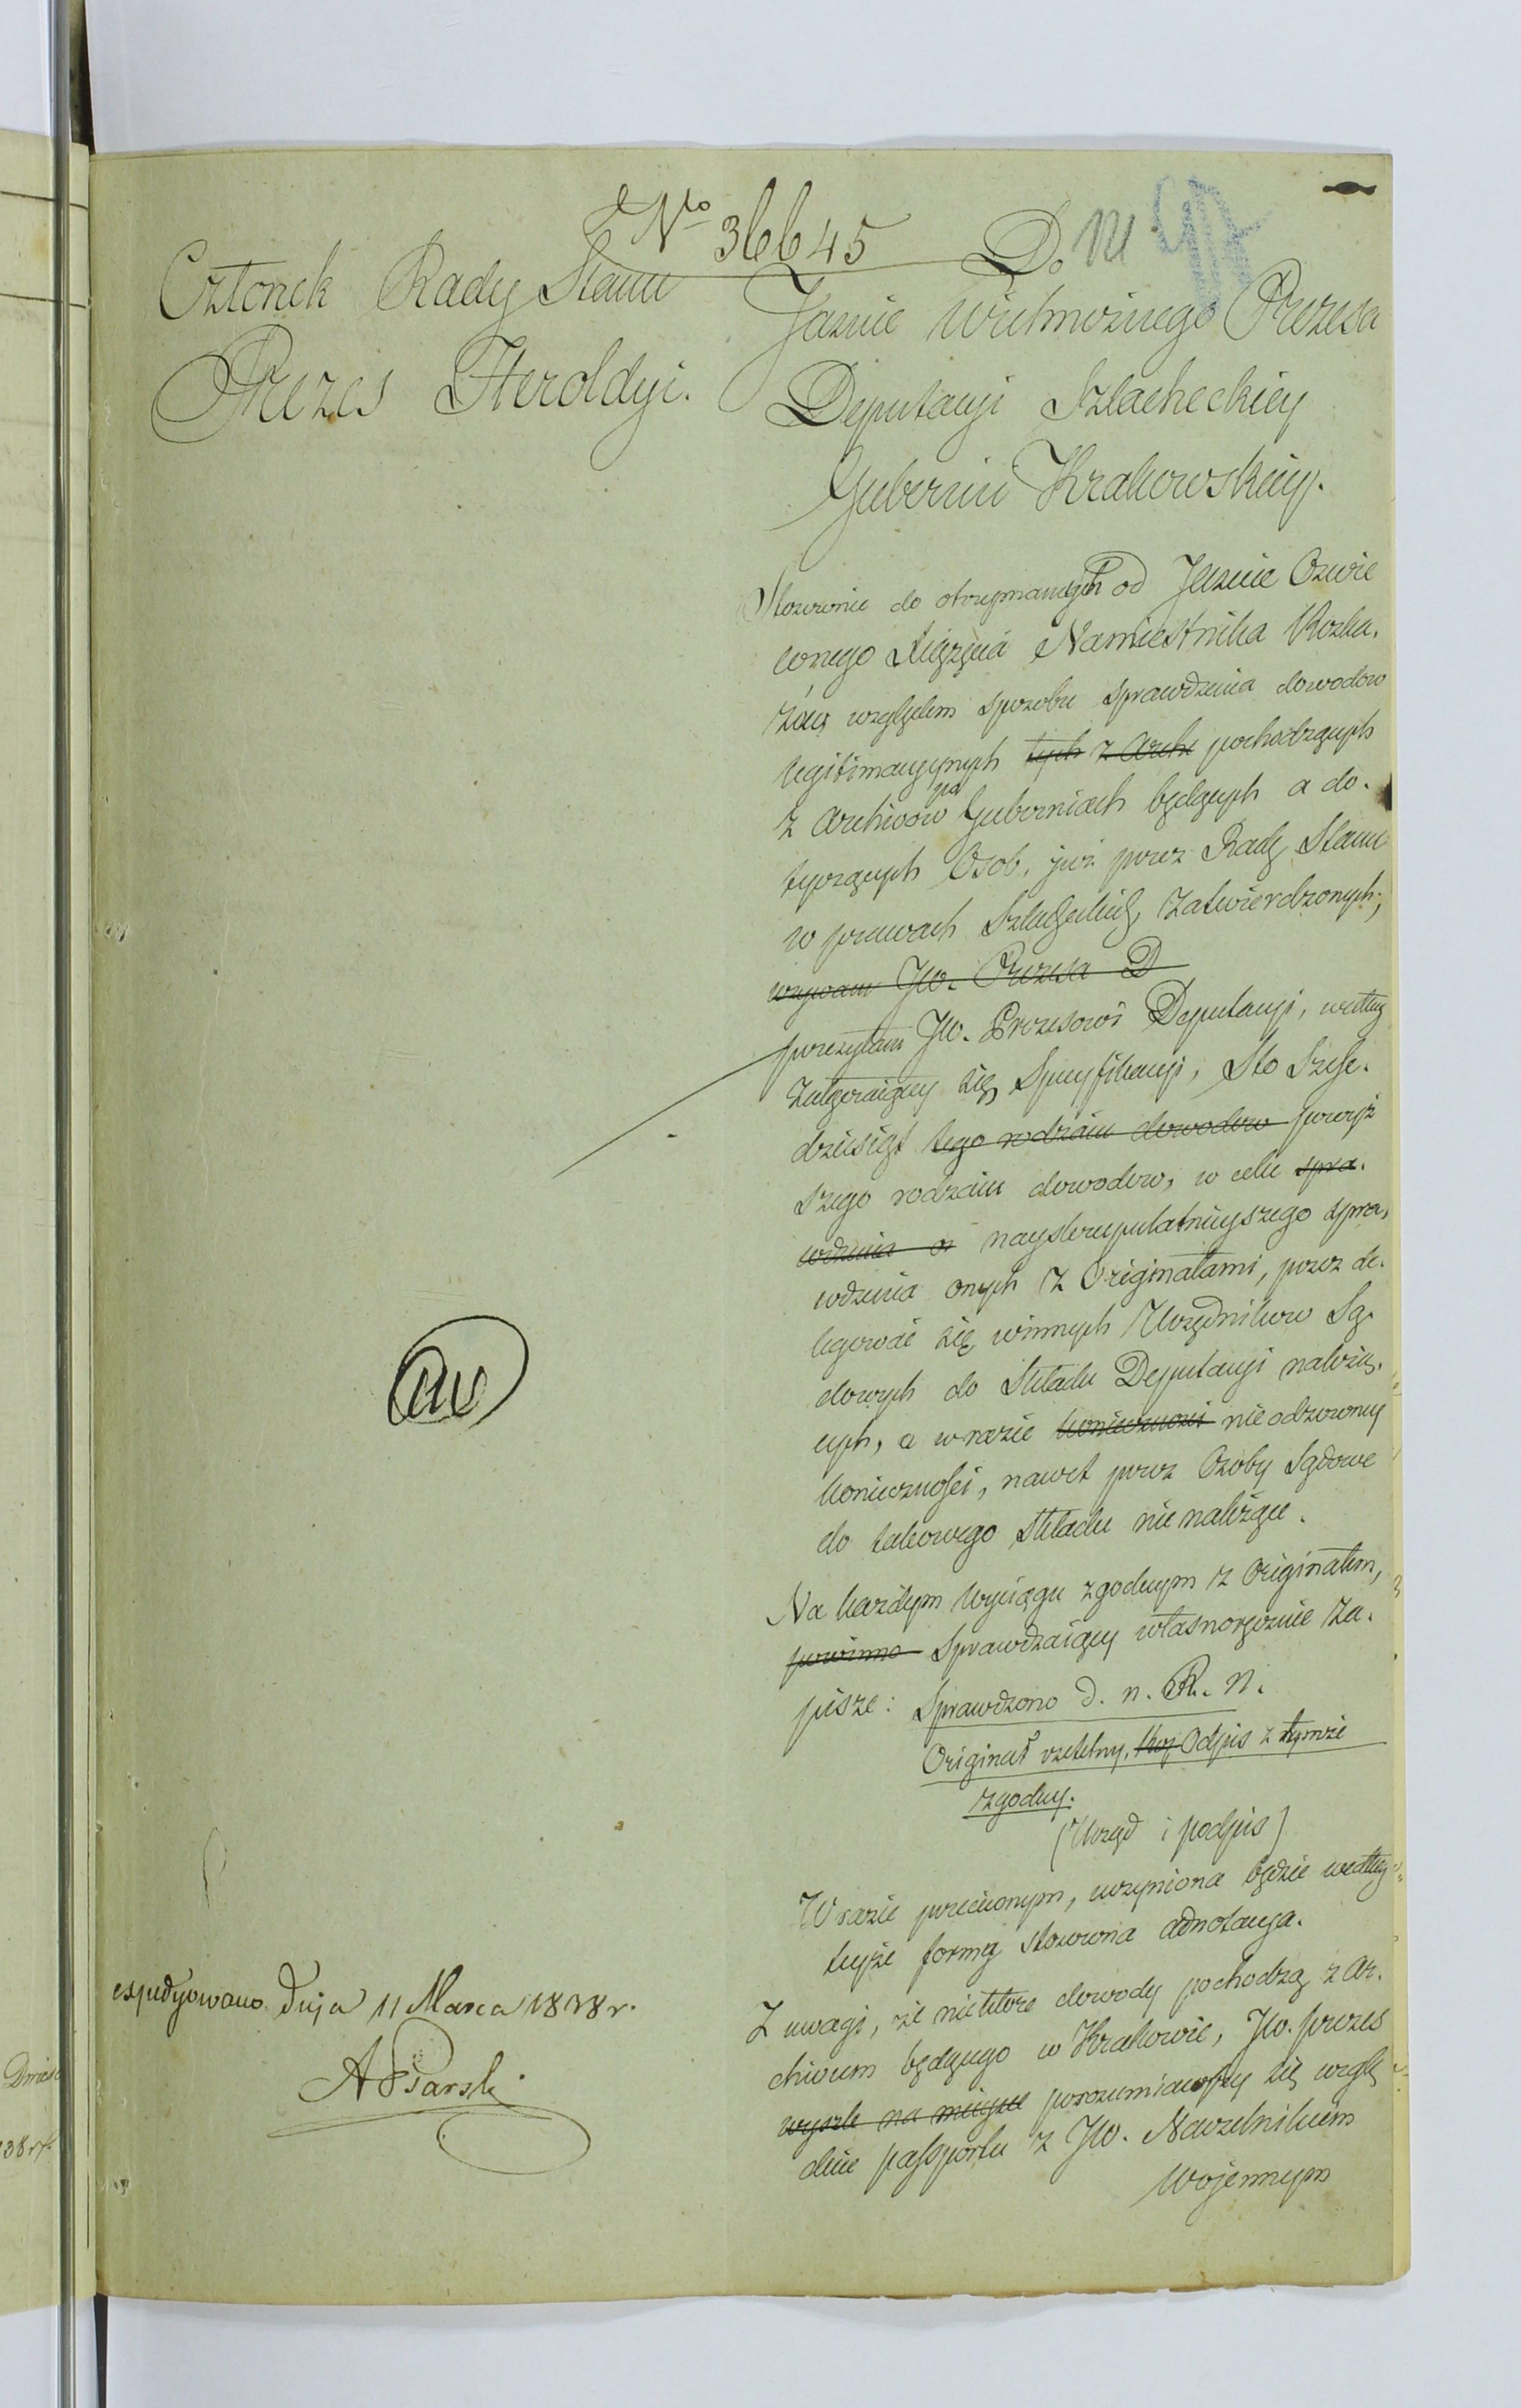 No 36645
Członek Rady Stanu
Prezes Heroldyi.
Do
Jaśnie Wielmożnego Prezesa
Deputacyi Szlacheckiey
Gubernii Krakowskiey.
Stosownie do otrzymanych od Jaśnie Oswie
conego Xięzęcia Namiestnika Rozka.
zów względem sposobu sprawdzenia dowodow
legitimacyynych tych z Arch pochodzących
z Archivow po Guberniach będących a do.
tyczących Osob, już przez Radę Stanu
w prawach Szlacheckich zatwierdzonych;
wzywam JW. Prezesa D
przesyłam JW. Prezesowi Deputacyi, według
załączaiącey się Specyfikacyi, Sto Szeſc.
dziesiąt tego rodzaiu dowodow powyż
szego rodzaiu dowodow, w celu spra.
wdzenia o nayskrupulatnieyszego spra,
wdzenia onych z Originałami, przez de.
legować się winnych Urzędnikow Są.
dowych do Składu Deputacyi należą.
cych, a w razie konieczności nieodzowney
koniecznoſci, nawet przez Osoby Sądowe
do takowego składu nienależące.
Na każdym Wyciągu zgodnym z Originałem,
powinno Sprawdzaiący własnoręcznie za.
pisze: Sprawdzono d. n. R. n.
Originał rzetelny, Kop Odpis z tymże
zgodny.
(Urząd i podpis)
W razie przeciwnym, uczyniona będzie według
teyże formy stosowna adnotacya.
Z uwagi, że niektóre dowody pochodzą z Ar.
chivum będącego w Krakowie, JW. prezes
wyszle na mieysce porozumiawszy się wzglę
dnie paſsportu z JW. Naczelnikiem
Wojennym
expedyowano Dnja 11 Marca 1838 r.
A Psarski